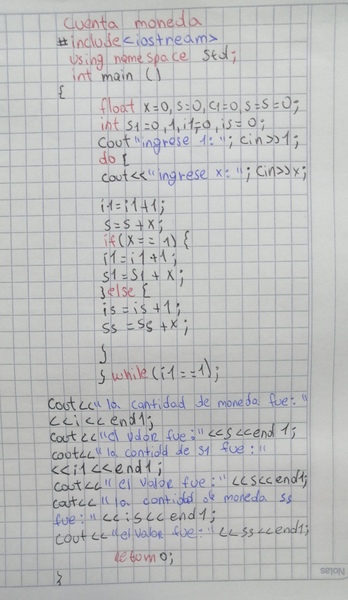 Cuenta moneda
#include<iostream>
using namespace std;
int main ()
{
float x=0, s=0, c1=0, s=s=0;
int s1=0, 1, i1=0, is=0;
cout "ingrese 1: "; cin>>1;
do {
cout<<"ingrese x: "; cin>>x;
i1=i1+1;
s=s+x;
if(x==1) {
i1=i1+1;
s1=s1+x;
}else {
is=is+1;
ss=ss+x;
}
} while(i1==1);
cout<<"la cantidad de moneda fue:"
<<i<<end1;
cout<<"el valor fue:"<<s<<end 1;
cout<<"la contidd de s1 fue:"
<<i1<<end1;
cout<<"el valor fue:"<<s<<end1;
cout<<"la contidad de moneda ss
fue:"<<is<<end1;
cout<<"el valor fue:"<<ss<<end1;
return 0;
}
Notas